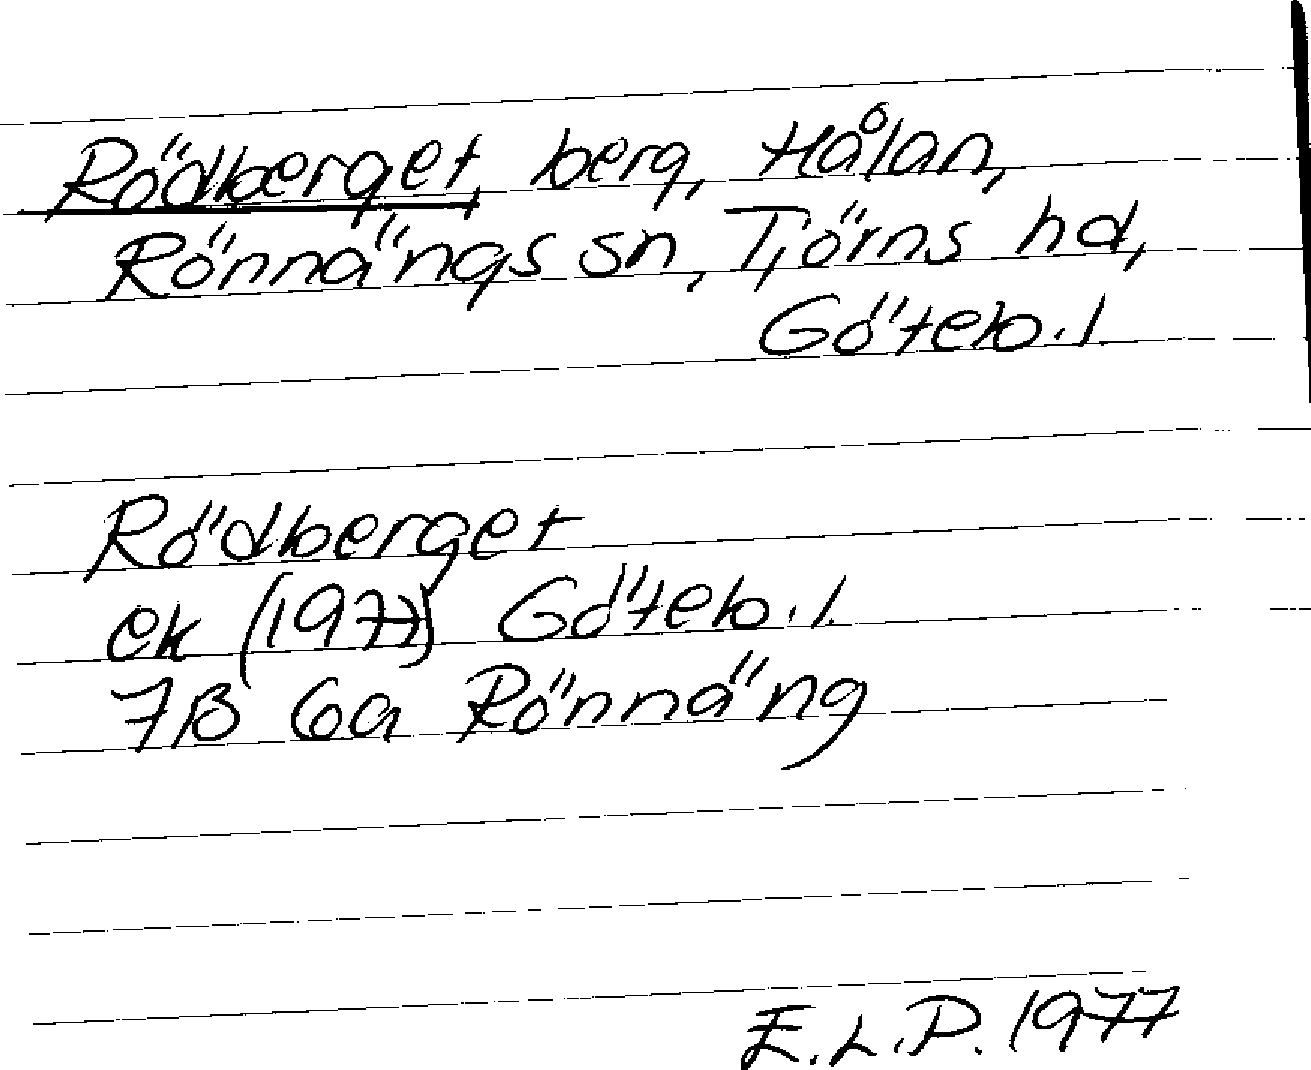 Rödberget, berg, Hålan,
Rönnängs sn, Tjörns hd,
Göteb. l.
Rödberget
ek (1977) Göteb. l.
7B 6a Rönnäng
E.L.P. 1977